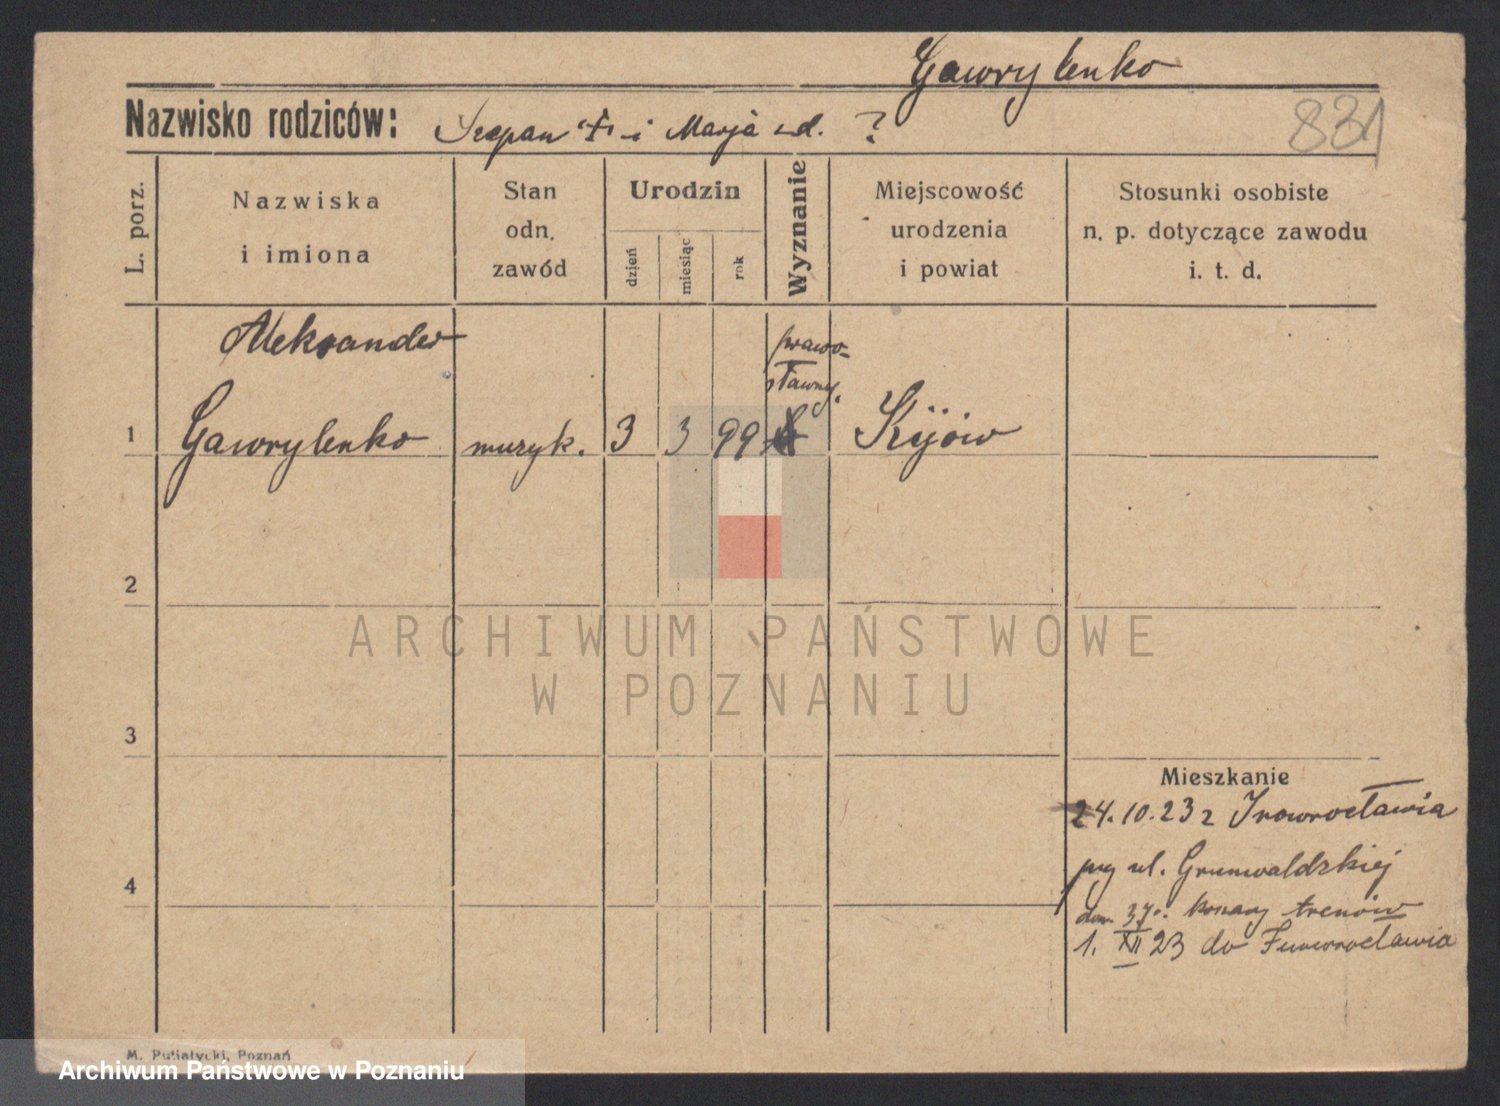 Gawrylenko
Nazwisko rodziców: Szczepan i Marja ?
831
L. porz.
Nazwiska
i imiona
Stan
odn.
zawód
Urodzin
dzień
miesiąc
rok
Wyznanie
Miejscowość
urodzenia
i powiat
Stosunki osobiste
n. p. dotyczące zawodu
i. t. d.
Aleksander
prawo-
sławny.
1 Gawrylenko muzyk. 3 3 99 Kijów
2
ARCHIWUM PAŃSTWOWE
W POZNANIU
3
Mieszkanie
24.10.23 z Inowrocławia
przy ul. Grunwaldzkiej
4
koszary trenów
1. XII 23 do Inowrocławia
M. Putiatycki, Poznań
Archiwum Państwowe w Poznaniu